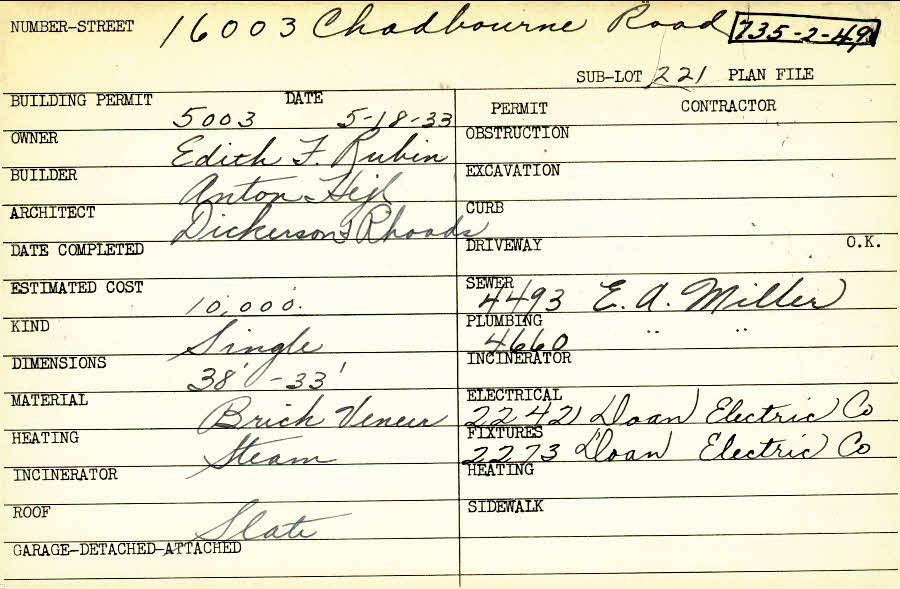 NUMBER-STREET 16003 Chadbourne Road 735-2-49
SUB-LOT 221 PLAN FILE
BUILDING PERMIT 5003 DATE 5-18-33
OWNER Edith F. Rubin
BUILDER Anton Hejl
ARCHITECT Dickerson & Rhoads
DATE COMPLETED
ESTIMATED COST 10,000.
KIND Single
DIMENSIONS 38' - 33'
MATERIAL Brick Veneer
HEATING Steam
INCINERATOR
ROOF Slate
GARAGE-DETACHED-ATTACHED
PERMIT CONTRACTOR
OBSTRUCTION
EXCAVATION
CURB
DRIVEWAY O.K.
SEWER 4493 E. A. Miller
PLUMBING 4660 " "
INCINERATOR
ELECTRICAL 2242 Doan Electric Co
FIXTURES 2273 Doan Electric Co
HEATING
SIDEWALK